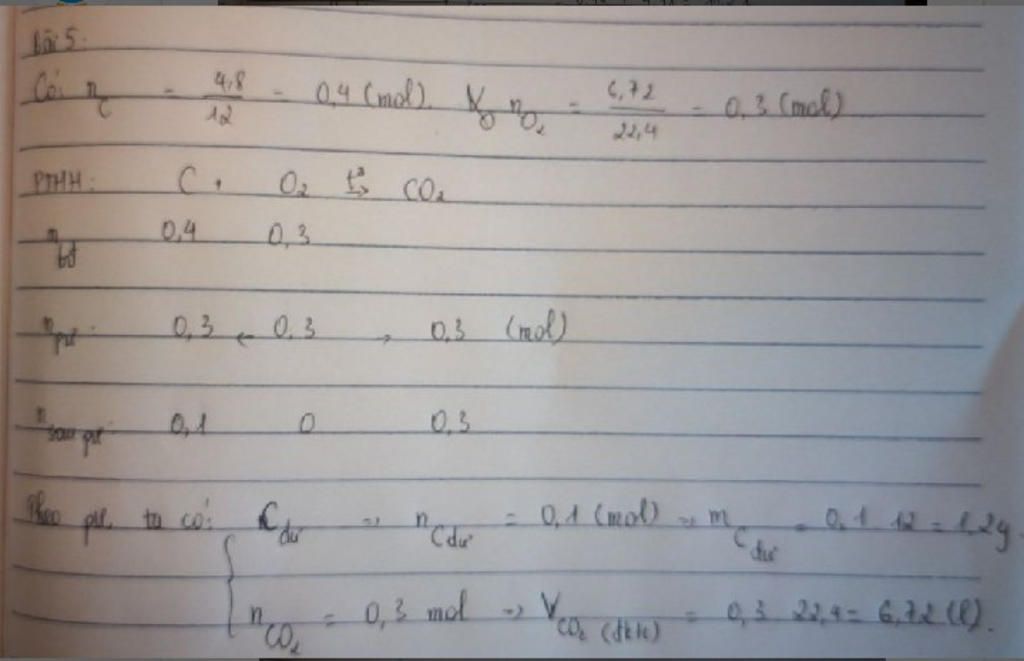 Bài 5:
Có: n_C = 4,8/12 = 0,4 (mol). n_O₂ = 6,72/22,4 = 0,3 (mol)
PTHH: C + O₂ t°→ CO₂
n_bđ 0,4 0,3
n_pư: 0,3 ← 0,3 → 0,3 (mol)
n_sau pư: 0,1 0 0,3
Theo pư, ta có: C_dư → n_C dư = 0,1 (mol) → m_C dư = 0,1 . 12 = 1,2g.
n_CO₂ = 0,3 mol → V_CO₂ (đktc) = 0,3 . 22,4 = 6,72 (l).